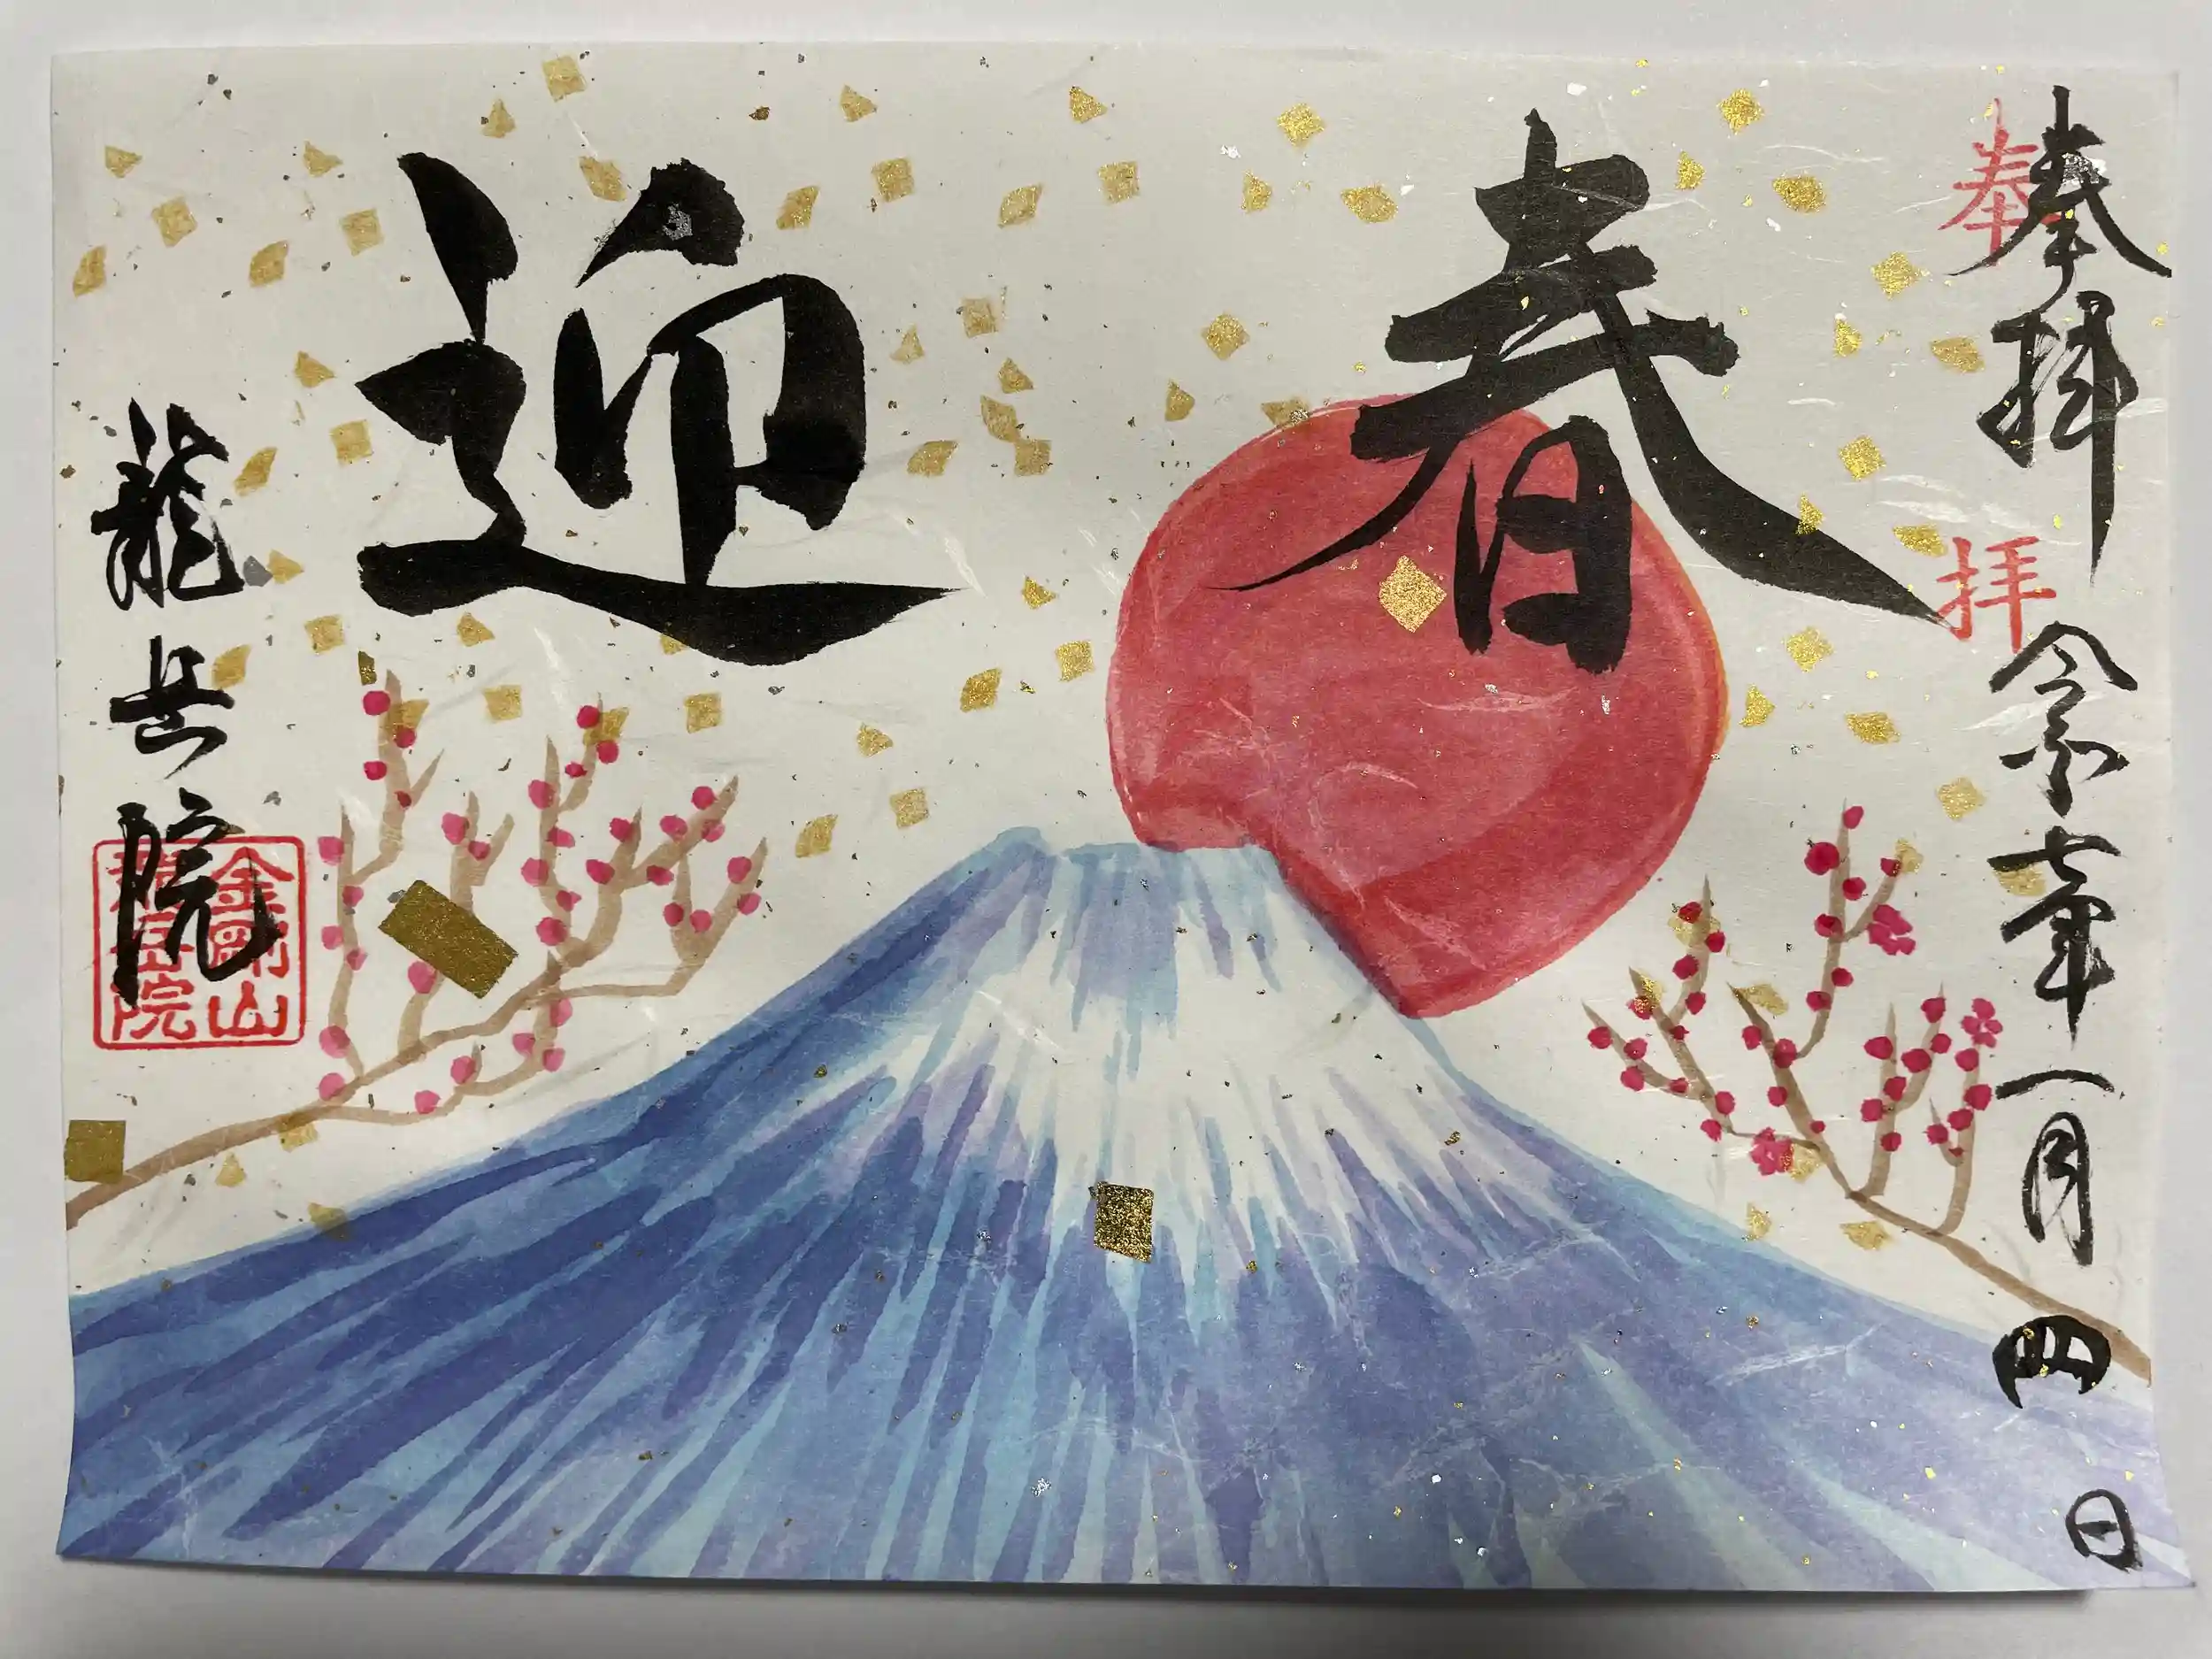 奉拝 令和七年一月四日
奉拝
迎春
龍岳院
金剛山
龍岳院